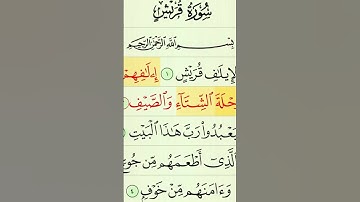 سُورَةُ قُرَيْشٍ
بِسْمِ اللَّهِ الرَّحْمَٰنِ الرَّحِيمِ
لِإِيلَٰفِ قُرَيْشٍ ١ إِۦلَٰفِهِمْ
حْلَةَ ٱلشِّتَآءِ وَٱلصَّيْفِ
يَعْبُدُوا۟ رَبَّ هَٰذَا ٱلْبَيْتِ
ٱلَّذِىٓ أَطْعَمَهُم مِّن جُوعٍ
وَءَامَنَهُم مِّنْ خَوْفٍۭ ٤